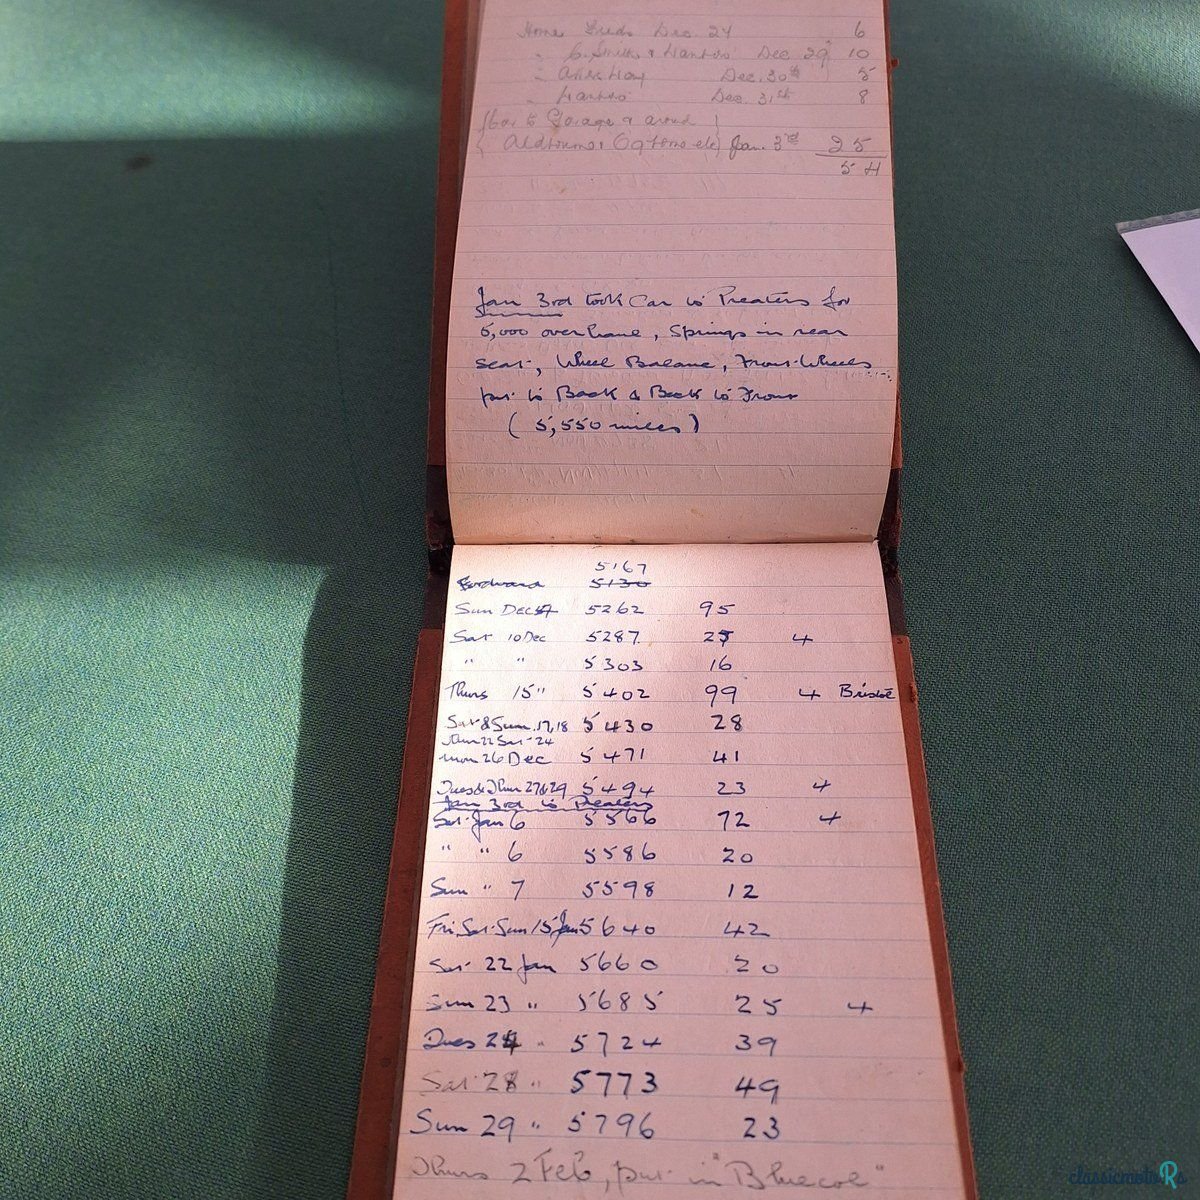 Home Dec. 24 6
" G. Smith & Dec. 29" 10
" Dec. 30th 5
" Dec. 31st 8
Car to Garage & around
Aldbourne etc Jan. 3rd 25
54
Jan 3rd took Car to Preaters for
5,000 overhaul, Springs in rear
seat, Wheel Balance, Front-Wheels
put to Back & Back to Front
(5,550 miles)
5167
Forward 5130
Sun Dec 5262 95
Sat 10 Dec 5287 25 4
" " 5303 16
Thurs 15" 5402 99 4 Bristol
Sat & Sun. 17, 18 5430 28
Thur 22 Sat-24
Mon 26 Dec 5471 41
Tues & Thur 27 & 29 5494 23 4
Jan 3rd to Preaters
Sat Jan 6 5566 72 4
" " 6 5586 20
Sun " 7 5598 12
Fri Sat-Sun 15 Jan 5640 42
Sat 22 Jan 5660 20
Sun 23 " 5685 25 4
Tues 24 " 5724 39
Sat 28 " 5773 49
Sun 29 " 5796 23
Thurs 2 Feb, put in "Bluecol"
classicmotoRs